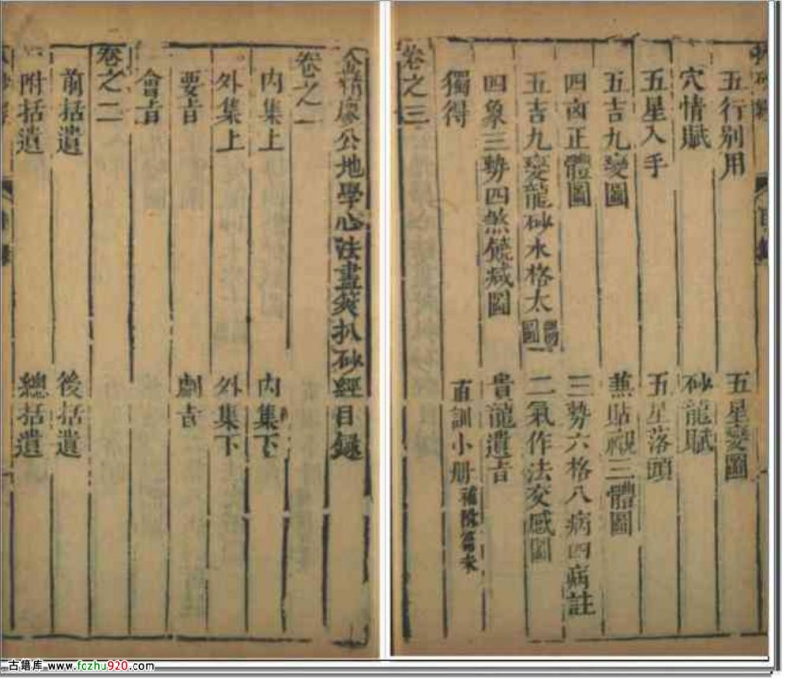 金精廖公地學心法畫筴扒砂經目錄
卷之一
內集上 內集下
外集上 外集下
要㫖 劇㫖
會㫖
卷之二
前括遺 後括遺
附括遺 總括遺
五行别用 五星變圖
穴情賦 砂龍賦
五星入手 五星落頭
五吉九變圖 蕉貼視三體圖
四凶正體圖 三勢六格八病四病註
五吉九變龍砂水格太陽圖 二氣作法交感圖
四象三勢四煞饒減圖 貴龍遺㫖
獨得 直訓小册
卷之三
古籍库 www.fczhu920.com